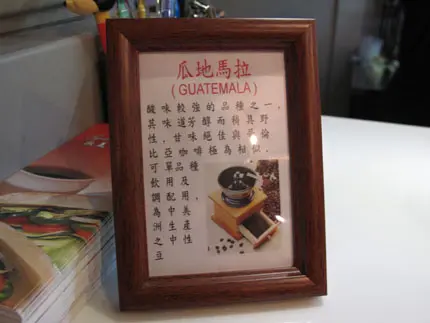 瓜地馬拉
(GUATEMALA)
酸味較強的品種之一,
其味邁芳醇而稍具野
性,甘味絕佳與哥倫
比亞咖啡極為相似.
可單品種
飲用及
調配用,
為中美
洲生產
之中性
豆